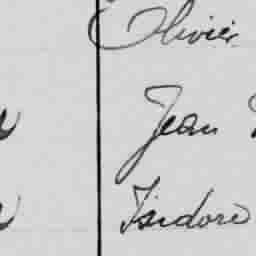 Olivier
Jean
Isidore